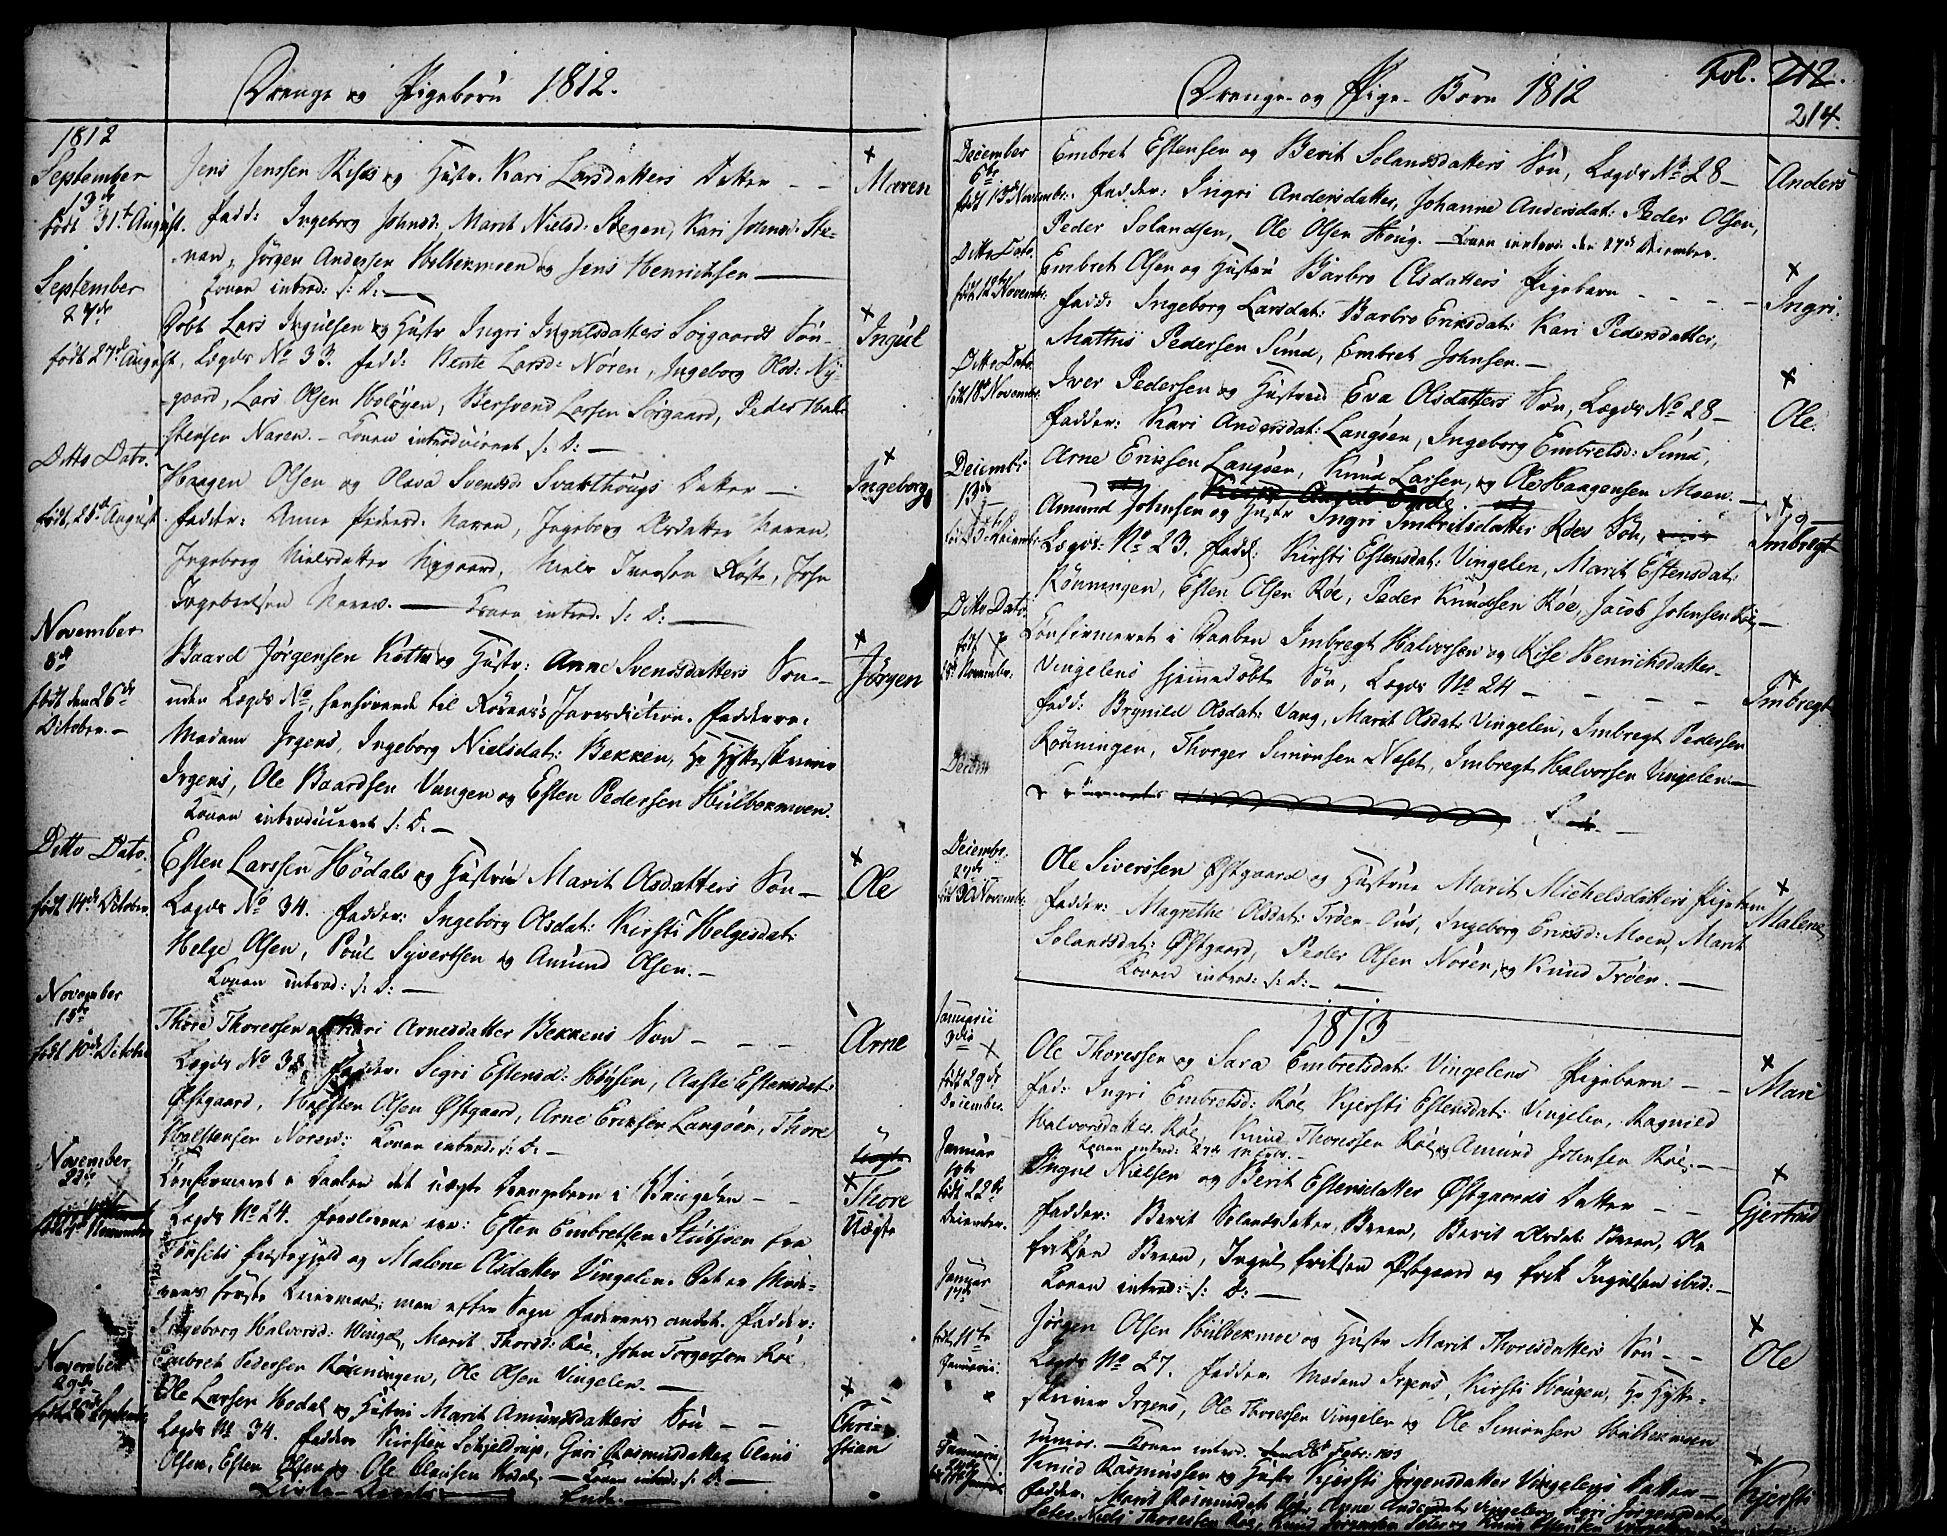 Drenge og Pigebørn 1812.
1812
September
13de
født 31te August.
Jens Jenssen Rises og Hustr. Kari Larsdatters Datter - -
Maren
Fadd: Ingeborg Johnsd: Marit Nielsd: Stegen, Kari Johnsd: Ste-
nen, Jørgen Andersen Hulbekmoen og Jens Henrichsen -
Konen introd: s: D: -
September
27de
født 27de August,
Døbt Lars Ingulsen og Hustr Ingri Ingulsdatters Søgaards Søn -
Ingul
Lægds No 33. Fadd: Bente Larsd: Noren, Ingeborg Olsd: Ny-
gaard, Lars Olsen Holøyen, Bersvend Larsen Sørgaard, Peder Hal-
stensen Noren. - Konen introduceret s: D: -
Ditto Dato.
født, 25de August
Haagen Olsen og Olava Svendsd: Svarthougs Datter -
Ingeborg
Fadder: Anne Pedersd: Noren, Ingeborg Olsdatter Noren,
Ingeborg Nielsdatter Nygaard, Niels Iversen Røste, John
Ingebretsen Noren. - Konen introd. s: D: -
November
8de
født den 26de
October. -
Baard Jørgensen Kottes og Hustr: Anne Svensdatters Søn -
Jørgen
uden Lægds No, henhørende til Røraas's Jurisdiction. Fadderne:
Madam Irgens, Ingeborg Nielsdat: Bekken, Hr Hytteskriver
Irgens, Ole Baardsen Vangen og Esten Pedersen Hulbekmoen.
Konen introduceret s: D. -
Ditto Dato.
født 14de October.
Esten Larssen Hødals og Hustrue Marit Olsdatters Søn -
Ole
Lægds No 34. Fadder: Ingeborg Olsdat: Kirsti Helgesdat:
Helge Olsen, Poul Syvertsen og Amund Olsen. -
Konen introd: s: D: -
November
15de
født 10de October
Thore Thoressen og Kari Arnesdatter Bekkens Søn - - -
Arne
Lægds No 38. Fadder. Segri Estensd: Høysen, Aaste Estensdat:
Østgaard, Halsten Olsen Østgaard, Arne Eriksen Langøen, Thore
Halstensen Noren: Konen introd: s: D: -
November
22de
født 4de November
Confirmeret i Daaben det uægte Drengebarn i Vingelen - -
Thore
Uægte
Lægds No 24. Forældrene ere: Esten Embretsen Stubsøen fra
Tønsets Præstegjeld og Malene Olsdatter Vingelen. Det er Mode-
rens første Leiermaal; men efter Sagn Faderens andet. Fadder:
Ingeborg Halvorsd: Vingel, Marit Thorsd: Røe, John Torgersen Røe
Embret Pedersen Rønningen, Ole Olsen Vingelen. -
November
29de
Ole Larsen Hodal og Hustru Marit Amundsdatters Søn - -
Chri-
stian
Lægds No 34. Fadder Kirsten Schjeldrup, Guri Rasmusdatter, Claus
Olsen, Esten Olsen og Ole Clausen Hodal. - Konen introd: s: D: -
Ende. -
Drenge- og Pige-Børn 1812
Fol. 212.
214.
December
6te
født 13de Novembr:
Embret Estensen og Berit Solandsdatters Søn, Lægds No 28 -
Anders
Fadder: Ingri Andersdatter, Johanne Andersdat: Peder Olsen,
Peder Solandsen, Ole Olsen Houg. - Konen introd: den 27de December.
Ditto Dato.
født 12te Novembr:
Embret Olsen og Hustru Barbro Olsdatters Pigebarn - - - -
Ingri.
Fadd: Ingeborg Larsdat: Barbro Eriksdat: Kari Pedersdatter,
Mathis Pedersen Sund, Embret Johnsen. -
Ditto Dato.
født 18de November
Iver Pedersen og Hustrue Eva Olsdatters Søn, Lægds No 28 -
Ole.
Fadder: Kari Andersdat: Langøen, Ingeborg Embretsd: Sund,
Arne Eriksen Langøen, Knud Larsen, og Ole Haagensen Moen. -
Decembr.
13de
Amund Johnsen og Hustr Ingri Imbretsdatter Røes Søn,
Imbregt
Lægds: No 23. Fadd: Kirsti Estensdat: Vingelen, Marit Estensdat:
Rønningen, Esten Olsen Røe, Peder Knudsen Røe, Jacob Johnsen Røe -
Ditto Dato
født
November.
Confirmeret i Daaben Imbregt Halvorsen og Kise Henrichsdatter
Vingelens hjemmedøbt Søn, Lægds No 24 - - -
Imbregt
Fadd: Brynild Olsdat: Vang, Marit Olsdat: Vingelen, Imbregt Pedersen
Rønningen, Thorger Simonsen Næset, Imbregt Halvorsen Vingelen. -
Decem
Decembr.
27de
født 30te Novembr:
Ole Siverssen Østgaard og Hustrue Marit Michelsdatters Pigebarn
Malene
Fadder: Magrethe Olsdat: Trøen-Ous, Ingeborg Eriksd: Moen, Marit
Solandsdat: Østgaard, Peder Olsen Noren, og Knud Trøen. -
Konen introd: s: D: -
1813
Januarii
3die
født 29de
December.
Ole Thoressen og Sara Embretsdat: Vingelens Pigebarn - -
Mari
Fad: Ingri Embretsd: Røe, Kjersti Estensdat: Vingelen, Ragnild
Halvorsdatter Røe, Knud Thoressen Røe og Amund Johnsen Røe. -
Konen introd: 2den
Januar
født 22de
December.
Ingul Nielsen og Berit Estensdatter Østgaards Datter - -
Gjertrud
Fadder: Berit Solandsdatter Breen, Berit Olsdat: Breen, Ole
Eriksen Breen, Ingul Eriksen Østgaard og Erik Ingulsen ibid: -
Konen introd: s: D: -
Januar
17de
født 11te
Januarii:
Jørgen Olsen Hulbekmoe og Hustr Marit Thoresdatters Søn - -
Ole
Lægds No 27. Fadder. Madam Irgens, Kirsti Haugen, Hr Hytte-
skriver Irgens, Ole Thoressen Vingelen og Ole Simonsen Hulbekmoen
junior. - Konen introd. den 28de Febr: 1813
Januarii
Knud Rasmussen og Hustr Kjersti Jørgensdatter Vingelens Datter -
Kjersti
Fadder. Marit Rasmusdat: Røe, Anne Andersdat: Vingelen, Kari Jørgensdat: